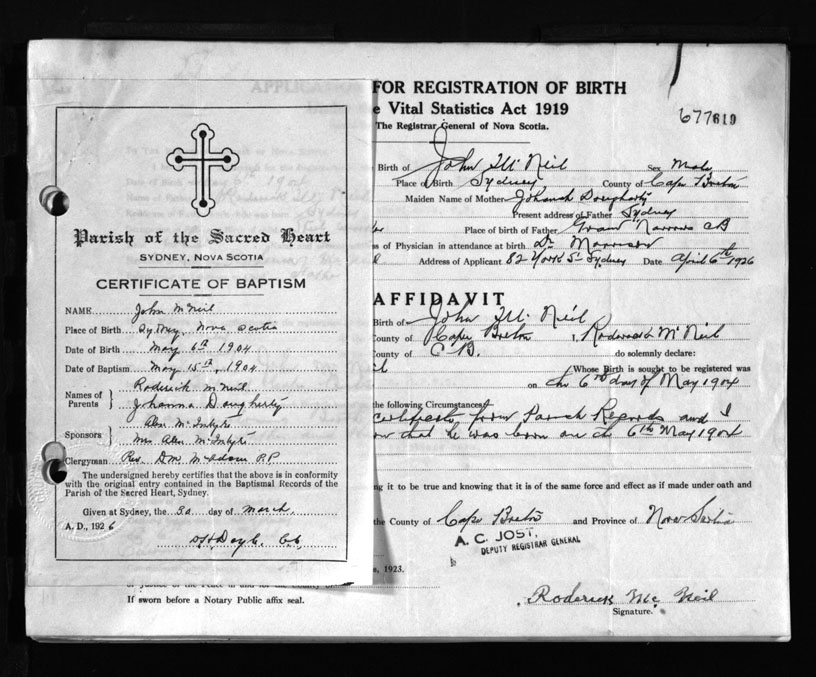 Parish of the Sacred Heart
SYDNEY, NOVA SCOTIA
CERTIFICATE OF BAPTISM
NAME John McNeil
Place of Birth Sydney, Nova Scotia
Date of Birth May 6th 1904
Date of Baptism May 15th, 1904
Names of Parents } Roderick McNeil
Johanna Dougherty
Sponsors } Alex McIntyre
Mrs Alex McIntyre
Clergyman Rev. D.M. McAdam P.P.
The undersigned hereby certifies that the above is in conformity
with the original entry contained in the Baptismal Records of the
Parish of the Sacred Heart, Sydney.
Given at Sydney, the 30 day of March,
A. D., 1926
APPLICATION FOR REGISTRATION OF BIRTH
e Vital Statistics Act 1919
The Registrar General of Nova Scotia.
677619
Birth of John McNeil Sex Male
Place of Birth Sydney County of Cape Breton
Maiden Name of Mother Johanah Dougherty
Present address of Father Sydney
Place of birth of Father Grand Narrows CB
s of Physician in attendance at birth Dr
Address of Applicant 82 York St Sydney Date April 6th 1926
AFFIDAVIT
Birth of John McNeil
County of Cape Breton I, Roderick McNeil
County of C B. do solemnly declare:
Whose Birth is sought to be registered was
on the 6th day of May 1904
the following Circumstances
certificate from Parish Records and I
ow that he was born on the 6th May 1904
ng it to be true and knowing that it is of the same force and effect as if made under oath and
the County of Cape Breton and Province of Nova Scotia
A. C. JOST,
DEPUTY REGISTRAR GENERAL
s, 1923.
If sworn before a Notary Public affix seal.
Roderick Mc Neil
Signature.